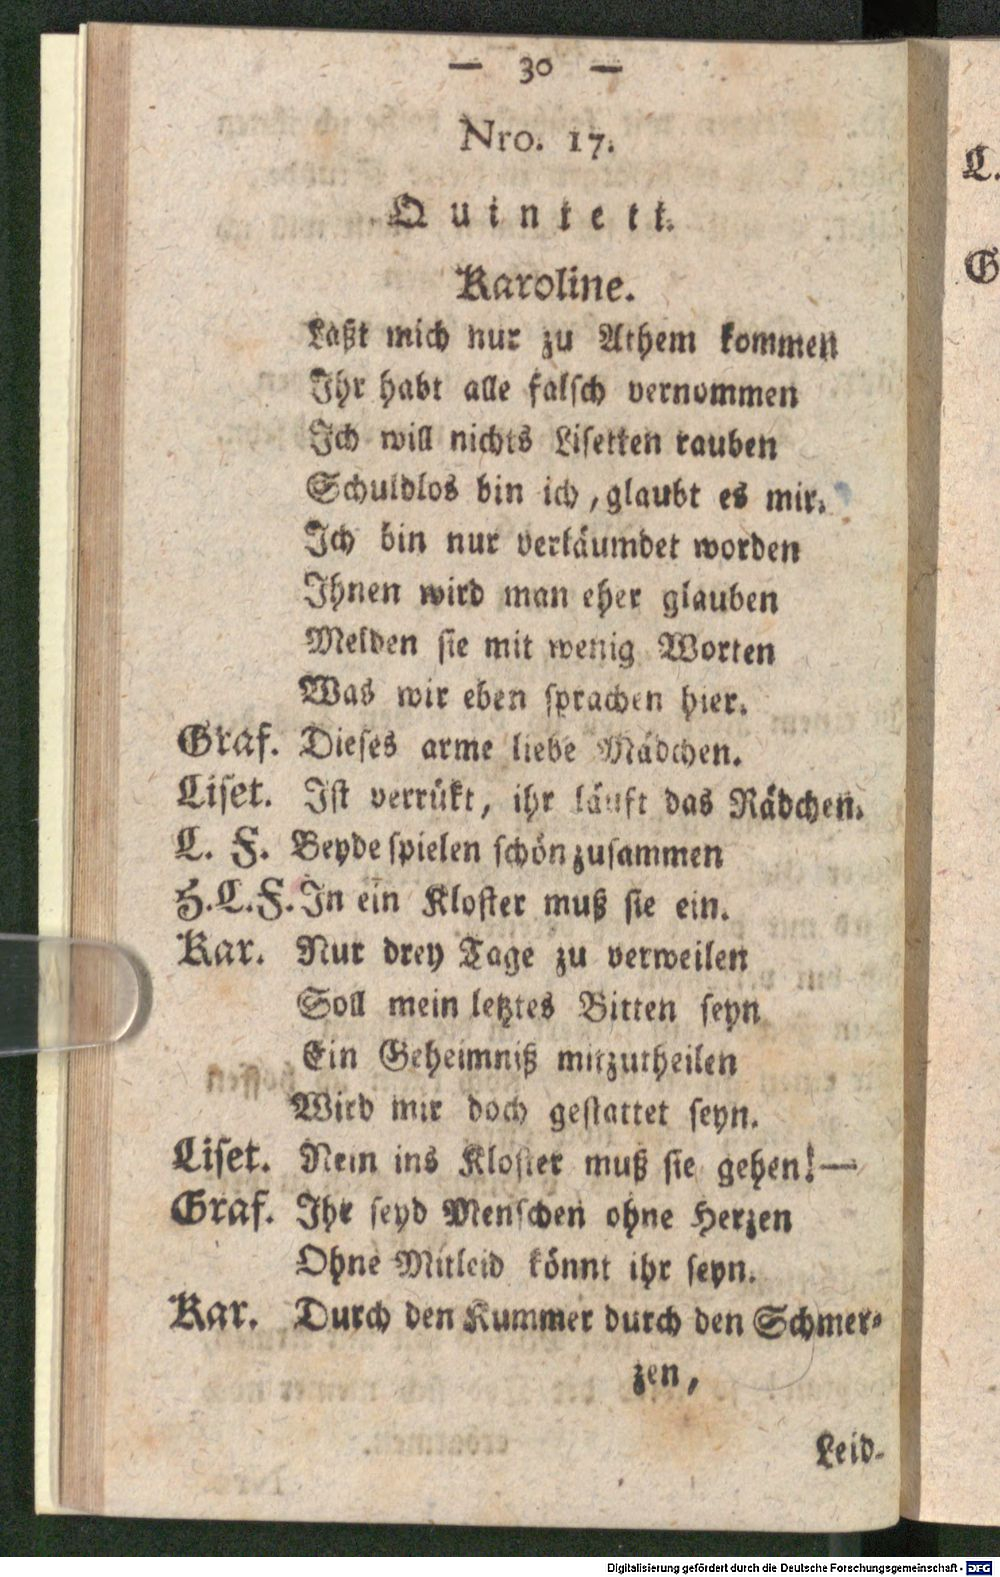 — 30 —
Nro. 17.
Quintett.
Karoline.
Laßt mich nur zu Athem kommen
Ihr habt alle falsch vernommen
Ich will nichts Lisetten rauben
Schuldlos bin ich, glaubt es mir.
Ich bin nur verläumdet worden
Ihnen wird man eher glauben
Melden sie mit wenig Worten
Was wir eben sprachen hier.
Graf. Dieses arme liebe Mädchen.
Liset. Ist verrükt, ihr läuft das Rädchen.
L. F. Beyde spielen schön zusammen
H.L.F. In ein Kloster muß sie ein.
Kar. Nur drey Tage zu verweilen
Soll mein letztes Bitten seyn
Ein Geheimniß mitzutheilen
Wird mir doch gestattet seyn.
Liset. Nein ins Kloster muß sie gehen! —
Graf. Ihr seyd Menschen ohne Herzen
Ohne Mitleid könnt ihr seyn.
Kar. Durch den Kummer durch den Schmer-
zen,
Leid-
L.
G
Digitalisierung gefördert durch die Deutsche Forschungsgemeinschaft - DFG